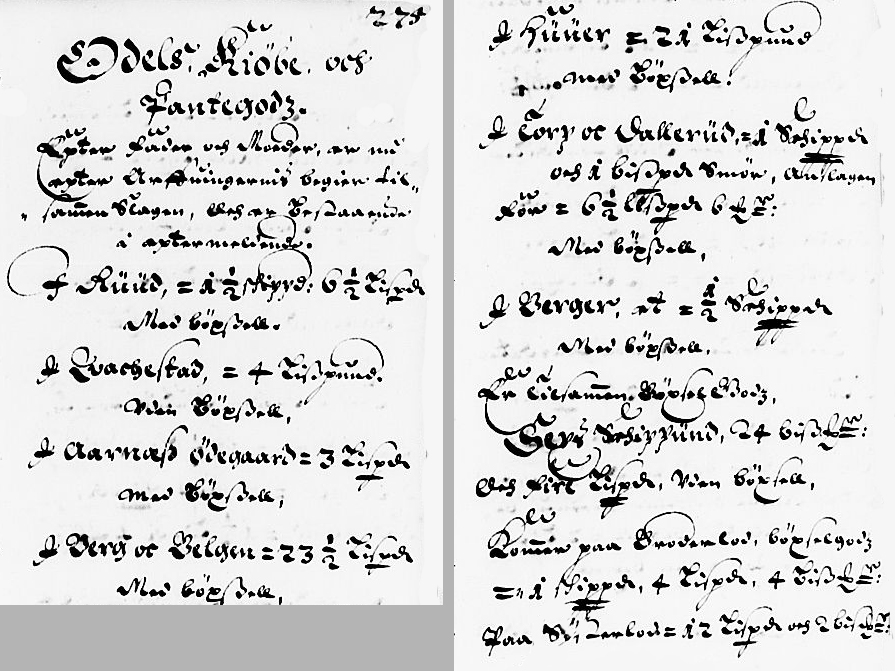 275
Odels, Kiöbe, och
Pantegodz.
Epter Fader och Moeder, er nu
epter Arffuingernis begier til„
„sammen Slagen, och er bestaaende
i eptermeldende.
I Ruud, = 1 ½ skippd: 6 ½ Lispd
Med böxsell.
I Quachestad, = 4 Lißpund.
Uden Böxsell,
I Aarnaß Ødegaard = 3 Lispd
Med Böxsell,
I Berg oc Bølgen = 23 ½ Lispd
Med böxsell,
I Huuer = 21 Lißpund
Med Böxsell.
I Torp oc Dallerud, = 1 Schippd
och 1 bißpd Smør, Anslagen
for = 6 ½ Lißpd 6
Med böxsell,
I Berger, et = ½ Schippd
Med böxsell,
Er tilsammen Böxsel Godz,
Sex Schippund, 24 biß
Och fire Lispd, Uden böxsell,
Kommer paa Broderlod, böxselgodz
= 1 skippd, 4 Lispd, 4 Biß
Paa Sösterlod = 12 Lispd och 2 biß